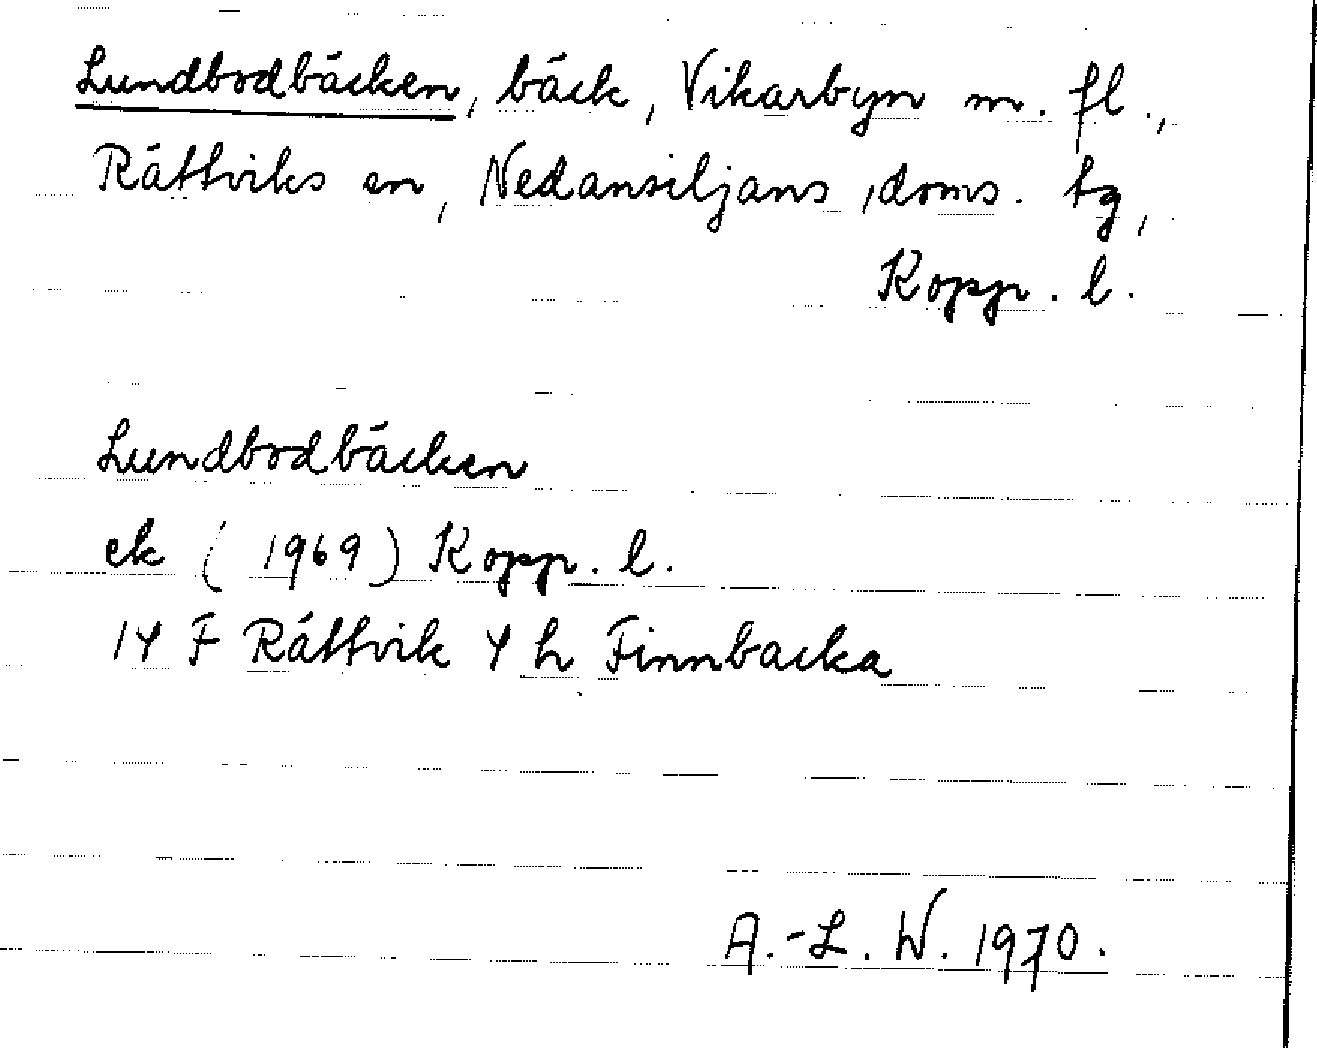 Lundbodbäcken, bäck, Vikarbyn m. fl.,
Rättviks sn, Nedansiljans doms. tg,
Kopp. l.
Lundbodbäcken
ek (1969) Kopp. l.
14 F Rättvik 4 h Finnbacka
A.-L. W. 1970.